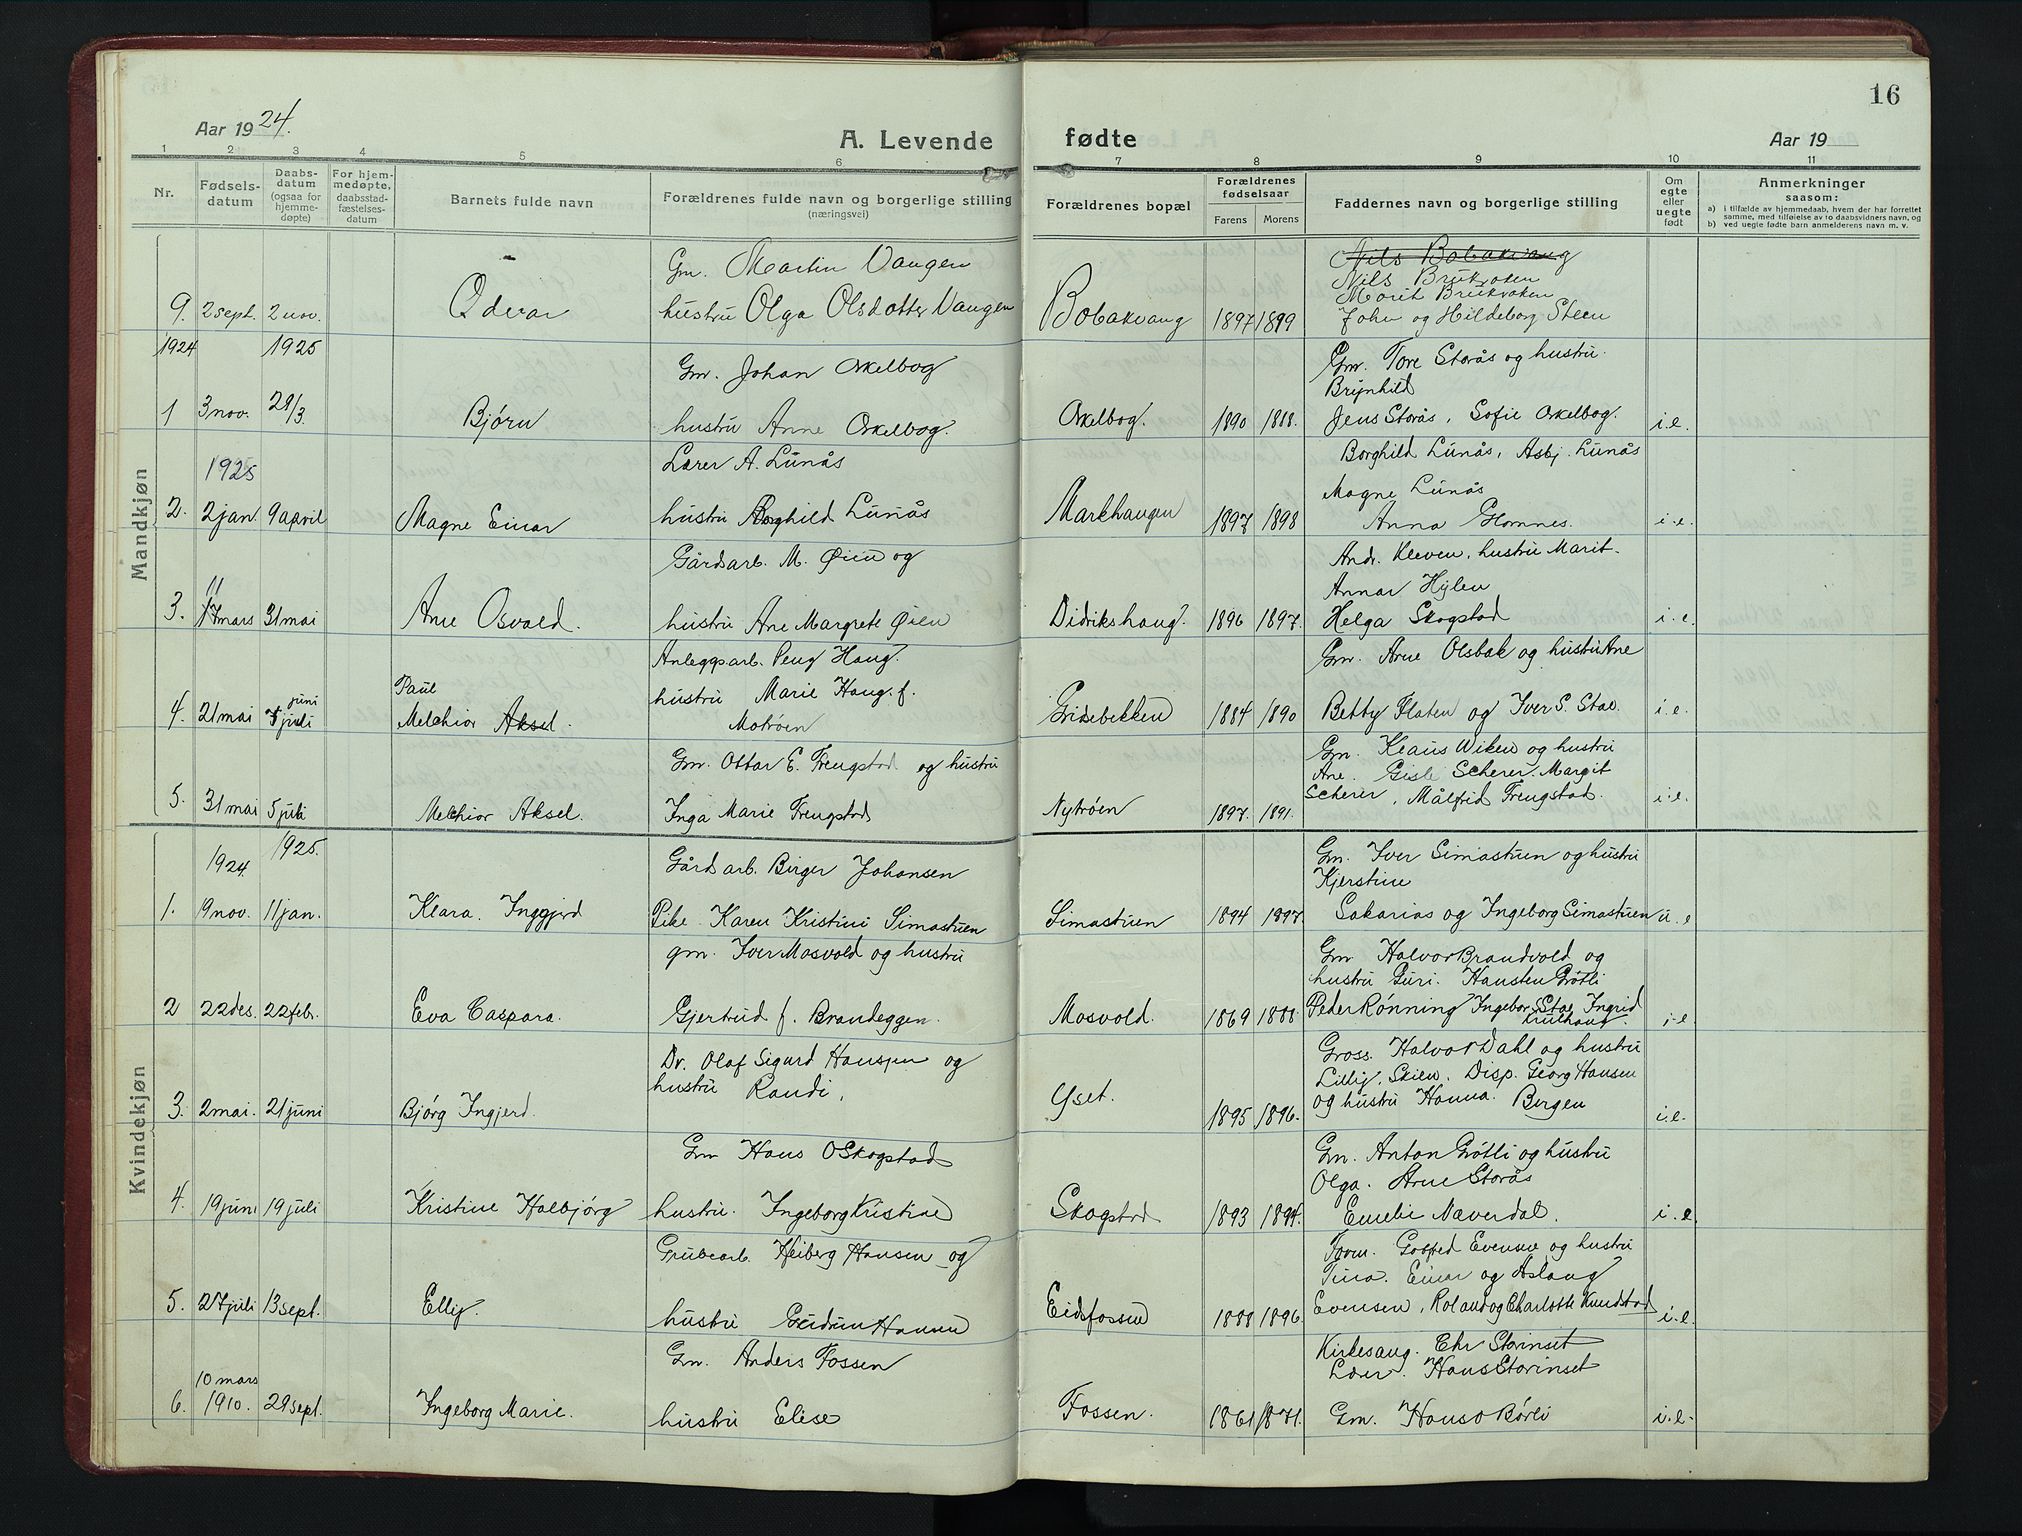 Aar 1924.
A. Levende
fødte
Aar 19
16
1 2 3 4 5 6 7 8 9 10 11
Nr.
Fødsels-
datum
Daabs-
datum
(ogsaa for
hjemme-
døpte)
For hjem-
medøpte,
daabsstad-
fæstelses-
datum
Barnets fulde navn
Forældrenes fulde navn og borgerlige stilling
(næringsvei)
Forældrenes bopæl
Forældrenes
fødselsaar
Farens Morens
Faddernes navn og borgerlige stilling
Om
egte
eller
uegte
født
Anmerkninger
saasom:
a) i tilfælde av hjemmedaab, hvem der har forrettet
samme, med tilføielse av to daabsvidners navn, og
b) ved uegte fødte barn anmelderens navn m. v.
Mandkjøn
9. 2 sept. 2 nov. Odvar
Gm. Martin Vangen
hustru Olga Olsdatter Vangen
Bobakvang 1897 1899
Nils Bobakvang
Nils Brukvoken
Marit Brukvoken
John og Hildeborg Steen
1924 1925
1 3 nov. 29/3. Bjørn
Gm. Johan Orkelbog
hustru Anne Orkelbog.
Orkelbog. 1890 1888.
Gm. Tore Storås og hustru
Brynhild
Jens Storås, Sofie Orkelbog. i.e.
1925
2. 2 jan. 9 april Magne Einar
Lærer A. Lunås
hustru Borghild Lunås
Markhaugen 1897 1898
Borghild Lunås, Asbj. Lunås
Magne Lunås
Anna Glomnes. i.e.
3. 11
17 mars 31 mai Arne Osvald.
Gårdsarb. M. Øien og
hustru Ane Margrete Øien
Didrikshaug. 1896 1897.
Andr. Kleven, hustru Marit.
Annar Hylen
Helga Skogstad i.e.
4. 21 mai juni
7 juli Paul
Melchior Aksel.
Anleggsarb. Peng Haug.
hustru Marie Haug. f.
Motrøen
Grisebekken 1884 1890
Gm. Arne Olsbak og hustru Ane
Betty Flaten og Iver S. Stai. i.e.
5. 31 mai 5 juli Melchior Aksel.
Gm. Ottar E. Trengstad og hustru
Inga Marie Trengstad
Nytrøen 1897. 1891.
Gm. Klaus Wiken og hustru
Ane. Gisle Scherer. Margit
Scherer, Målfrid Trengstad. i.e.
Kvindekjøn
1924. 1925.
1. 19 nov. 11 jan. Klara. Inggjerd
Gårdsarb. Birger Johansen
Pike Karen Kristine Simastuen
Simastuen 1894 1897.
Gm. Iver Simastuen og hustru
Kjerstine
Sakarias og Ingeborg Simastuen u.e
2 22 des. 22 febr. Eva Caspara.
gm. Iver Mosvold og hustru
Gjertrud f. Brandeggen.
Mosvold. 1869 1888.
Gm Halvor Brandvold og
hustru Guri. Hansten Grøtli
Peder Rønning Ingebor Stai Ingrid
Krulhaug. i.e.
3. 2 mai. 21 juni Bjørg Ingjerd.
Dr. Olaf Sigurd Hanssen og
hustru Randi.
Yset. 1895 1896.
Gross. Halvor Dahl og hustru
Lilly, Skien. Disp. Georg Hansen
og hustru Hanna. Bergen i.e.
4. 19 juni 19 juli Kristine Halbjørg
Gm Hans O Skogstad
hustru. Ingeborg Kristine
Skogstad 1893 1894.
Gm. Anton Grøtli og hustru
Olga. Arne Storås
Emelie Næverdal. i.e.
5. 27 juli 13 sept. Elly.
Grubearb. Heiberg Hansen og
hustru Gudrun Hansen
Eidsfossen 1888 1896.
Form. Gotfred Evensen og hustru
Tina. Einar og Aslaug
Evensen, Roland og Charlotte Kundstad i.e.
6. 10 mars
1910. 29 sept. Ingeborg Marie.
Gm. Anders Fossen
hustru Elise
Fossen. 1861 1871.
Kirkesang. Chr Storinset
Lærer. Hans Storinset
Gm. Hans O Børli i.e.